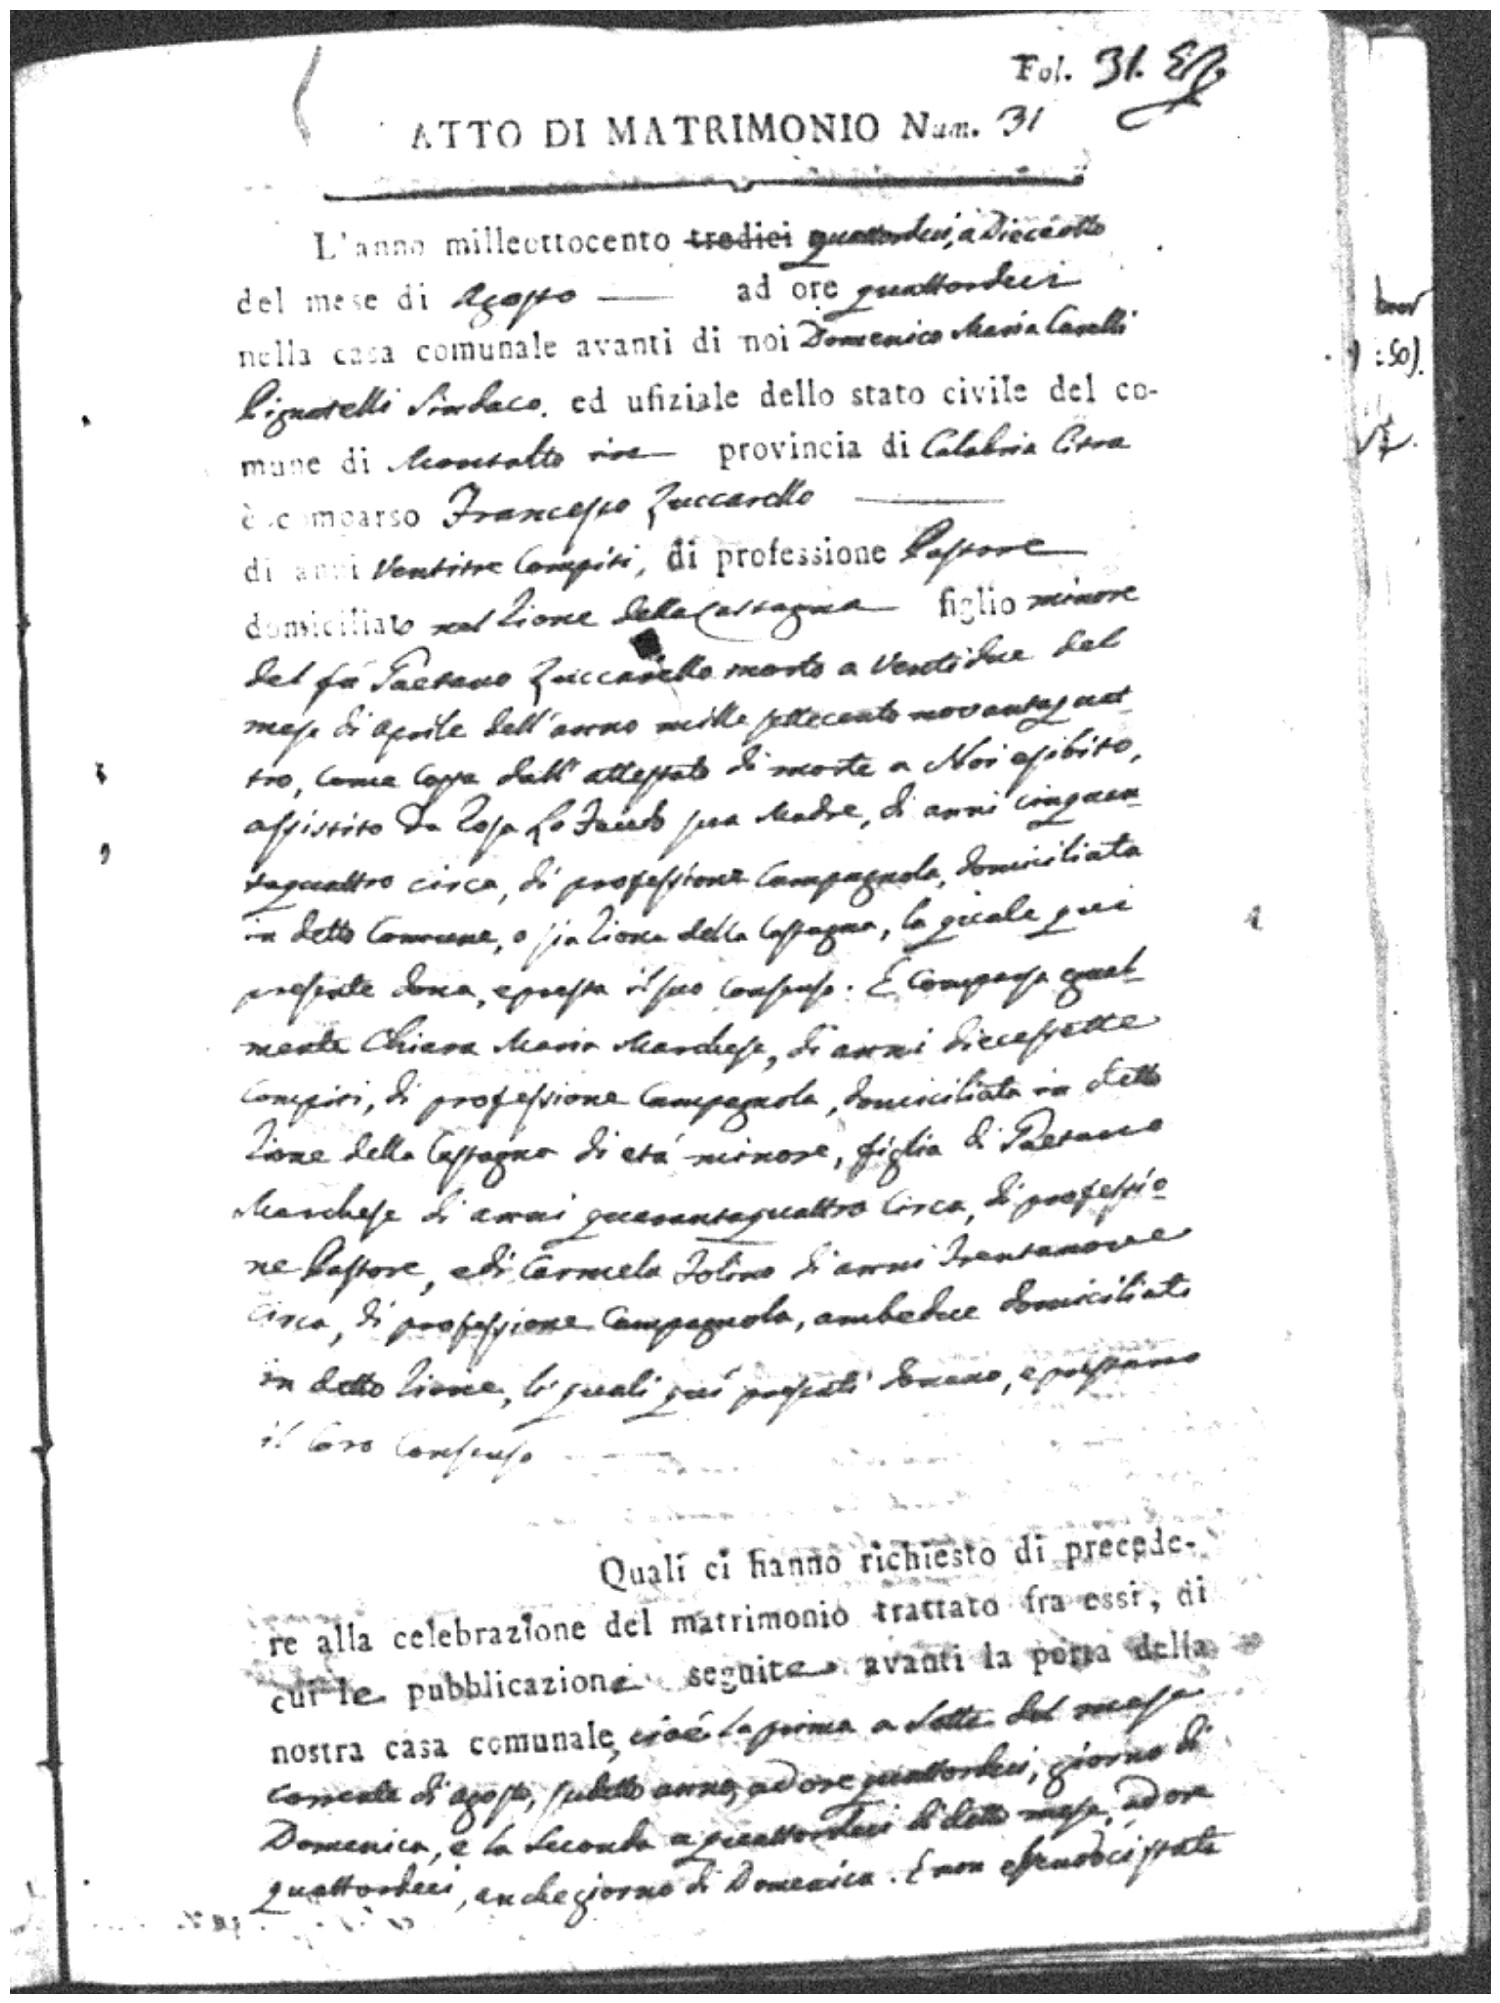 Fol. 31.
ATTO DI MATRIMONIO Num. 31
L'anno milleottocento tredici quattordeci, a Dieciotto
del mese di Agosto ad ore quattordeci
nella casa comunale avanti di noi Domenico Maria Caselli
Pignatelli Sindaco. ed ufiziale dello stato civile del co-
mune di Montalto in provincia di Calabria Citra
è comparso Francesco Zuccarello
di anni Ventitre Compiti, di professione Pastore
domiciliato nel Rione della Castagna figlio minore
del fù Gaetano Zuccarello morto a Ventidue del
mese di Aprile dell'anno mille settecento novantaquat-
tro, come costa dall'attestato di morte a Noi esibito,
assistito da Rosa Lo sua Madre, di anni cinquan-
taquattro circa, di professione Campagnola, domiciliata
in detto Comune, o sia Rione della Castagna, la quale qui
presente dona, e presta il suo consenso. È Comparsa equal-
mente Chiara Maria Marchese, di anni dieciessette
Compiti, di professione Campagnola, domiciliata in detto
Rione della Castagna di età minore, figlia di Gaetano
Marchese di anni quarantaquattro Circa, di professio-
ne Pastore, e di Carmela Iolino di anni Trentanove
Circa, di professione Campagnola, ambedue domiciliati
in detto Rione, li quali quì presenti donano, e prestano
il loro Consenso
Quali ci hanno richiesto di precede-
re alla celebrazione del matrimonio trattato fra essi, di
cui le pubblicazione seguite avanti la porta della
nostra casa comunale, cioè la prima a Sette del mese
corrente di agosto, sudetto anno, ad ore quattordeci, giorno di
Domenica, e la Seconda a quattordeci di detto mese, ad ore
quattordeci, anche giorno di Domenica. E non essendoci stata